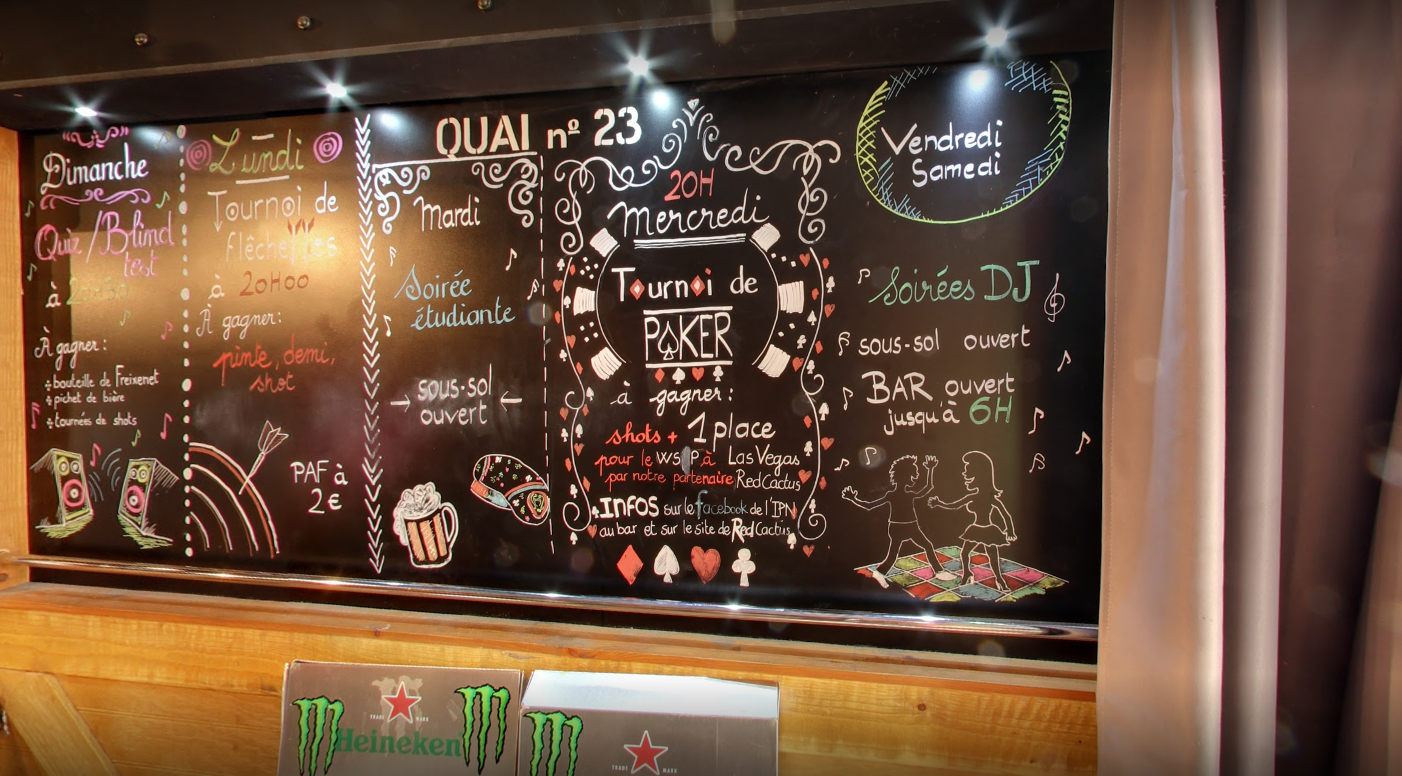 QUAI nº 23
Dimanche
Quiz/Blind
test
à
À gagner:
bouteille de Freixenet
pichet de bière
tournées de shots
Lundi
Tournoi de
flêchettes
à 20H00
À gagner:
pinte, demi,
shot
PAF à
2€
Mardi
Soirée
étudiante
sous-sol
ouvert
20H
Mercredi
Tournoi de
POKER
à gagner:
shots + 1 place
pour le WSOP à Las Vegas
par notre partenaire RedCactus
INFOS sur le facebook de l'IPN
au bar et sur le site de RedCactus
Vendredi
Samedi
Soirées DJ
sous-sol ouvert
BAR ouvert
jusqu'à 6H
TRADE MARK
Heineken
TRADE MARK